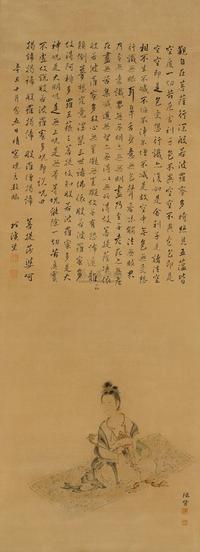 觀自在菩薩行深般若波羅蜜多時照見五蘊皆
空度一切苦厄舍利子色不異空空不異色色即是
空空即是色受想行識亦復如是舍利子是諸法空
相不生不滅不垢不淨不增不減是故空中無色無受想
行識無眼耳鼻舌身意無色聲香味觸法無眼界
乃至無意識界無無明亦無無明盡乃至無老死亦無老
死盡無苦集滅道無智亦無得以無所得故菩提薩埵依
般若波羅蜜多故心無罣礙無罣礙故無有恐怖遠離
顛倒夢想究竟涅槃三世諸佛依般若波羅蜜多
故得阿耨多羅三藐三菩提故知般若波羅蜜多是大
神咒是大明咒是無上咒是無等等咒能除一切苦真實
不虛故說般若波羅蜜多咒即說咒曰
揭諦揭諦 般羅揭諦 般羅僧揭諦 菩提莎婆呵
辛丑十月念五日